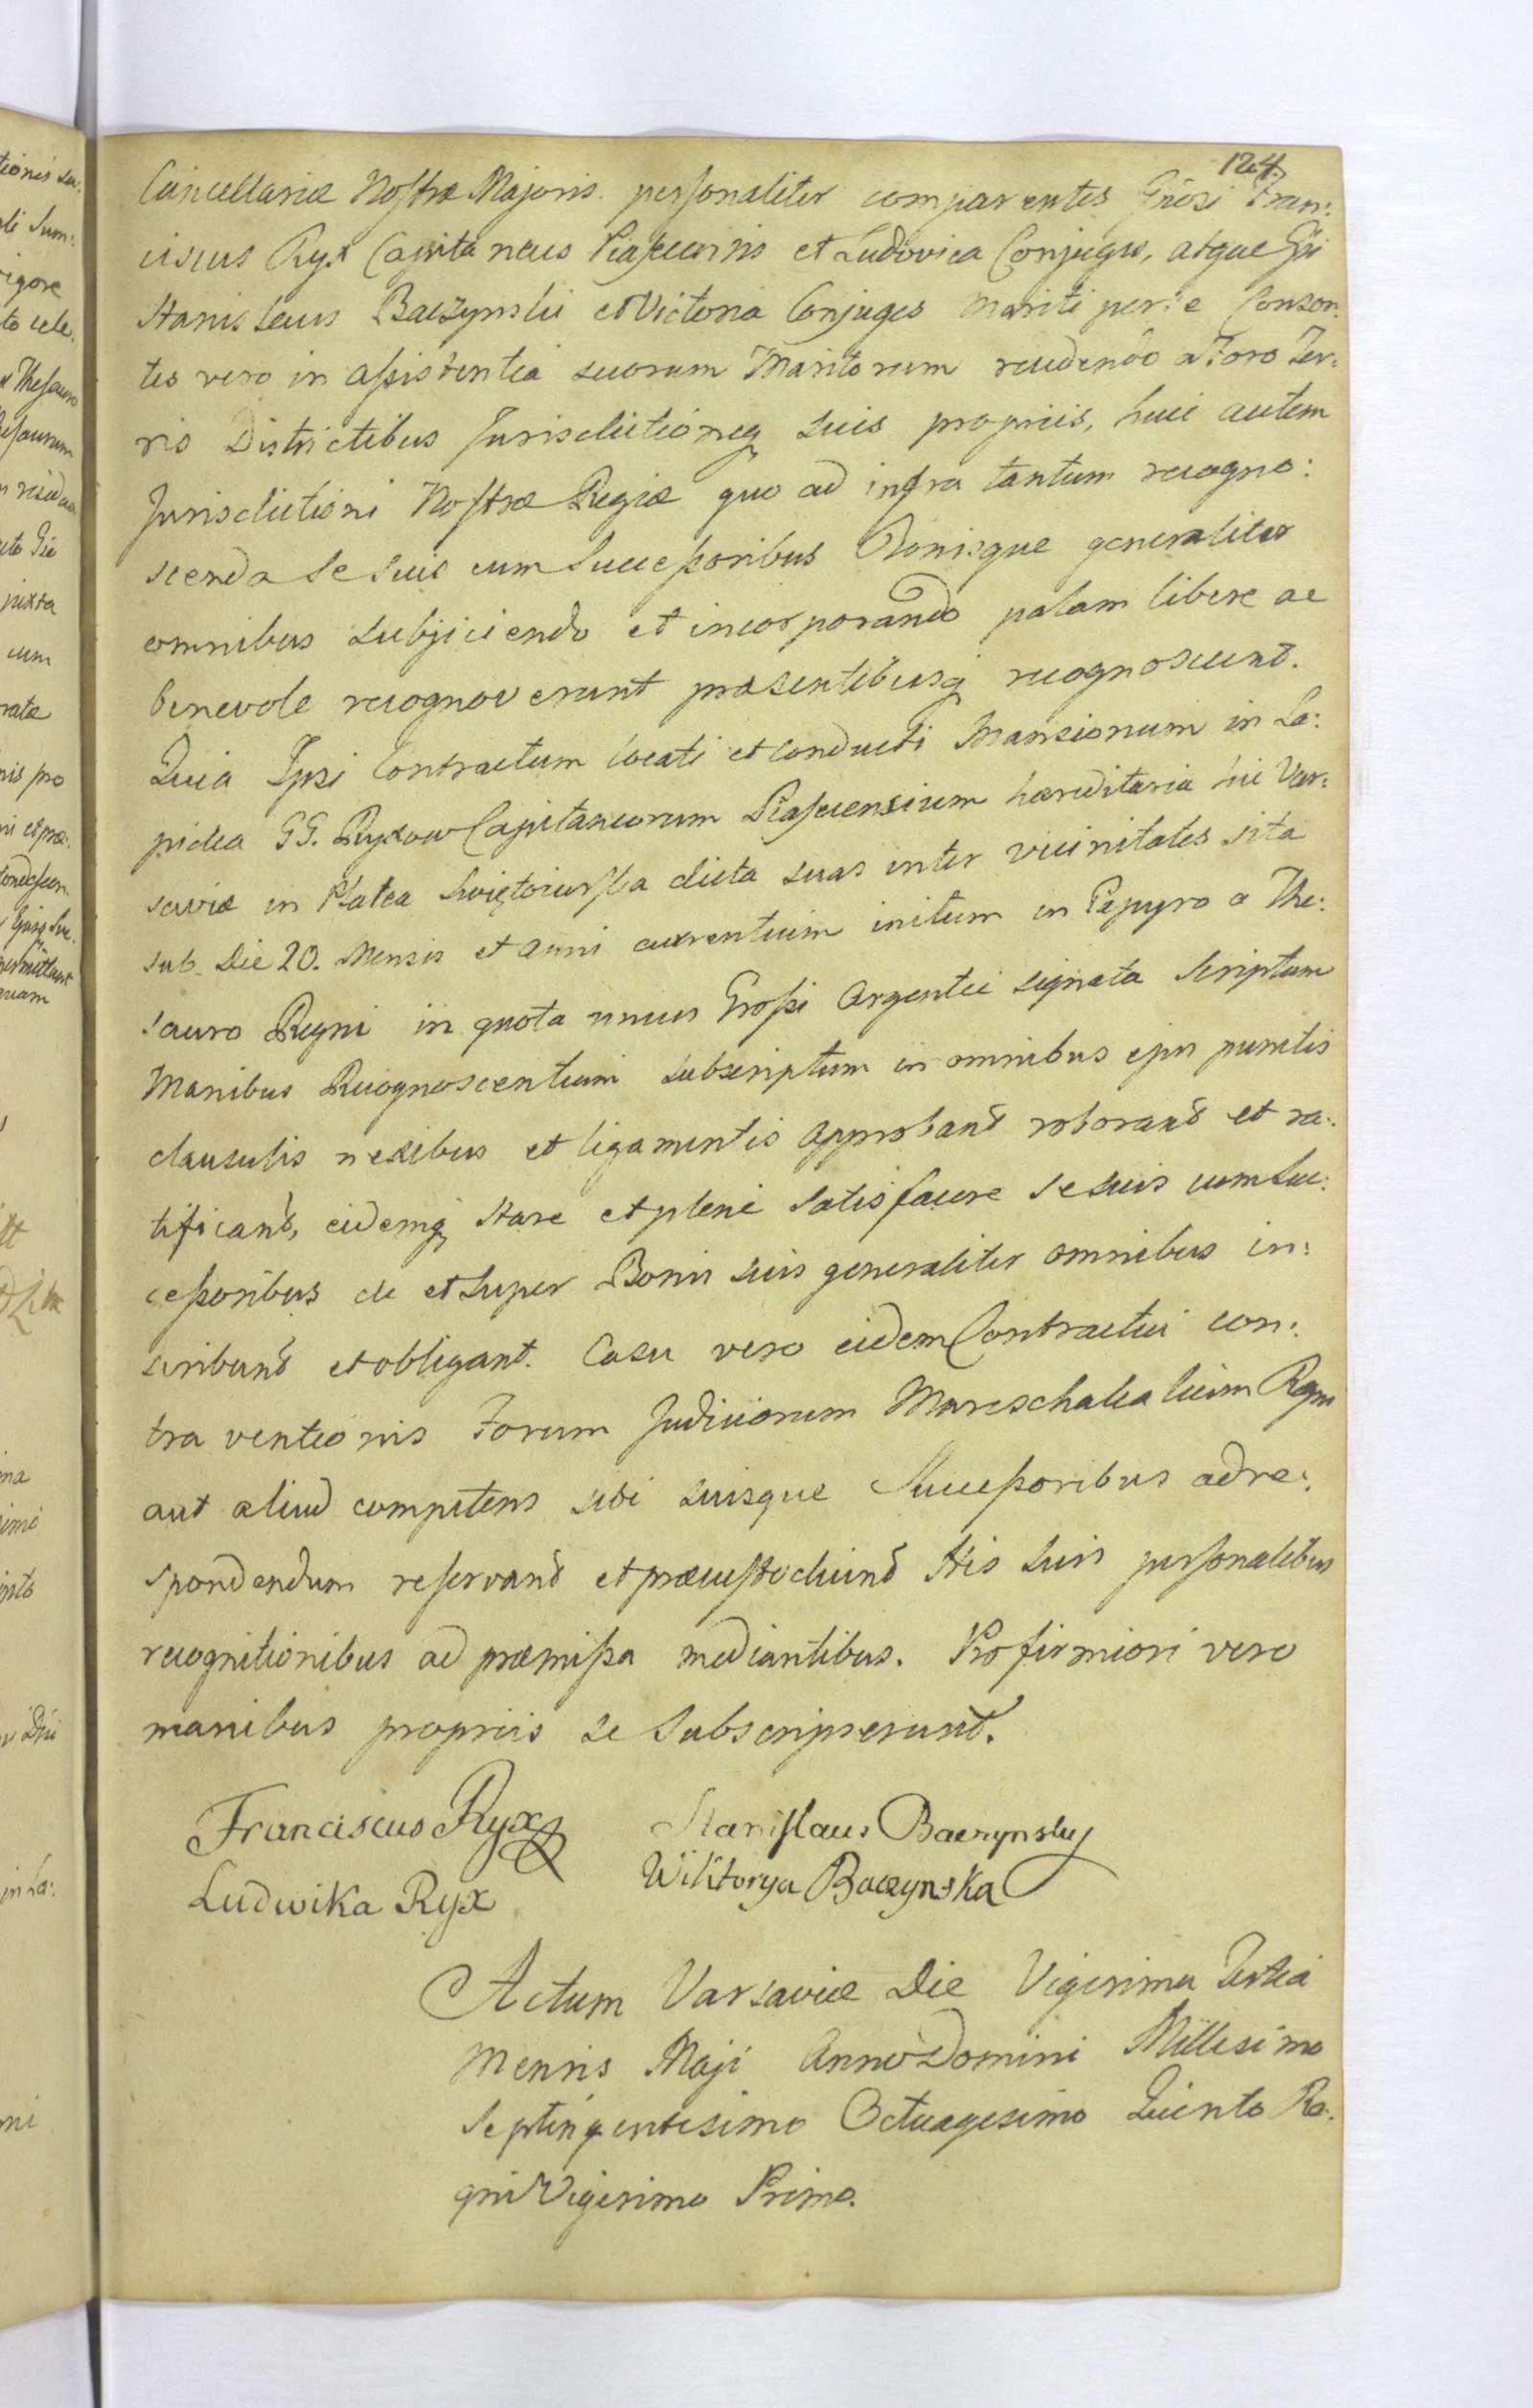 124.
Cancellariæ Nostræ Majoris personaliter comparentes Gñosi Fran:
ciscus Ryx Capitaneus Piasecensis et Ludovica Conjuges, atque Gñi
Stanislaus Baczynski et Victoria Conjuges Mariti per se Consor:
tes vero in assistentia suorum Maritorum recedendo a Foro Ter:
ris Districtibus Jurisdictioneq suis propriis, huic autem
Jurisdictioni Nostræ Regiæ quo ad infra tantum recogno:
scenda se suis cum Successoribus Bonisque generaliter
omnibus subjiciendo et incorporando palam libere ac
benevole recognoverunt præsentibusq recognoscunt.
Quia Ipsi Contractum locati et conducti Mansionum in La:
pidea GG. Ryxow Capitaneorum Piasecensium hæreditaria hic Var:
saviæ in Platea Swiętoiurska dicta suas inter vicinitates sita
sub Die 20. Mensis et anni currentium initum in Papyro a The:
sauro Regni in quota unius Grossi Argentei signata Scriptum
Manibus Recognoscentium subscriptum in omnibus ejus punctis
clausulis nexibus et ligamentis approbant roborant et ra:
tificant, eidemq stare et plene satisfacere se suis cum Suc:
cessoribus de et super Bonis suis generaliter omnibus in:
scribunt et obligant. Casu vero eidem Contractui con:
traventionis Forum Judiciorum Mareschalcalium Regni
aut aliud competens sibi suisque Successoribus ad re:
spondendum reservant et præcustodiunt His suis personalibus
recognitionibus ad præmissa mediantibus. Pro firmiori vero
manibus propriis se subscripserunt.
Franciscus Ryx
Stanislaus Baczynsky
Ludwika Ryx
Wiktorya Baczynska
Actum Varsaviæ Die Vigesima Tertia
Mensis Maji Anno Domini Millesimo
Septingentesimo Octuagesimo Quinto Re:
gni Vigesimo Primo.